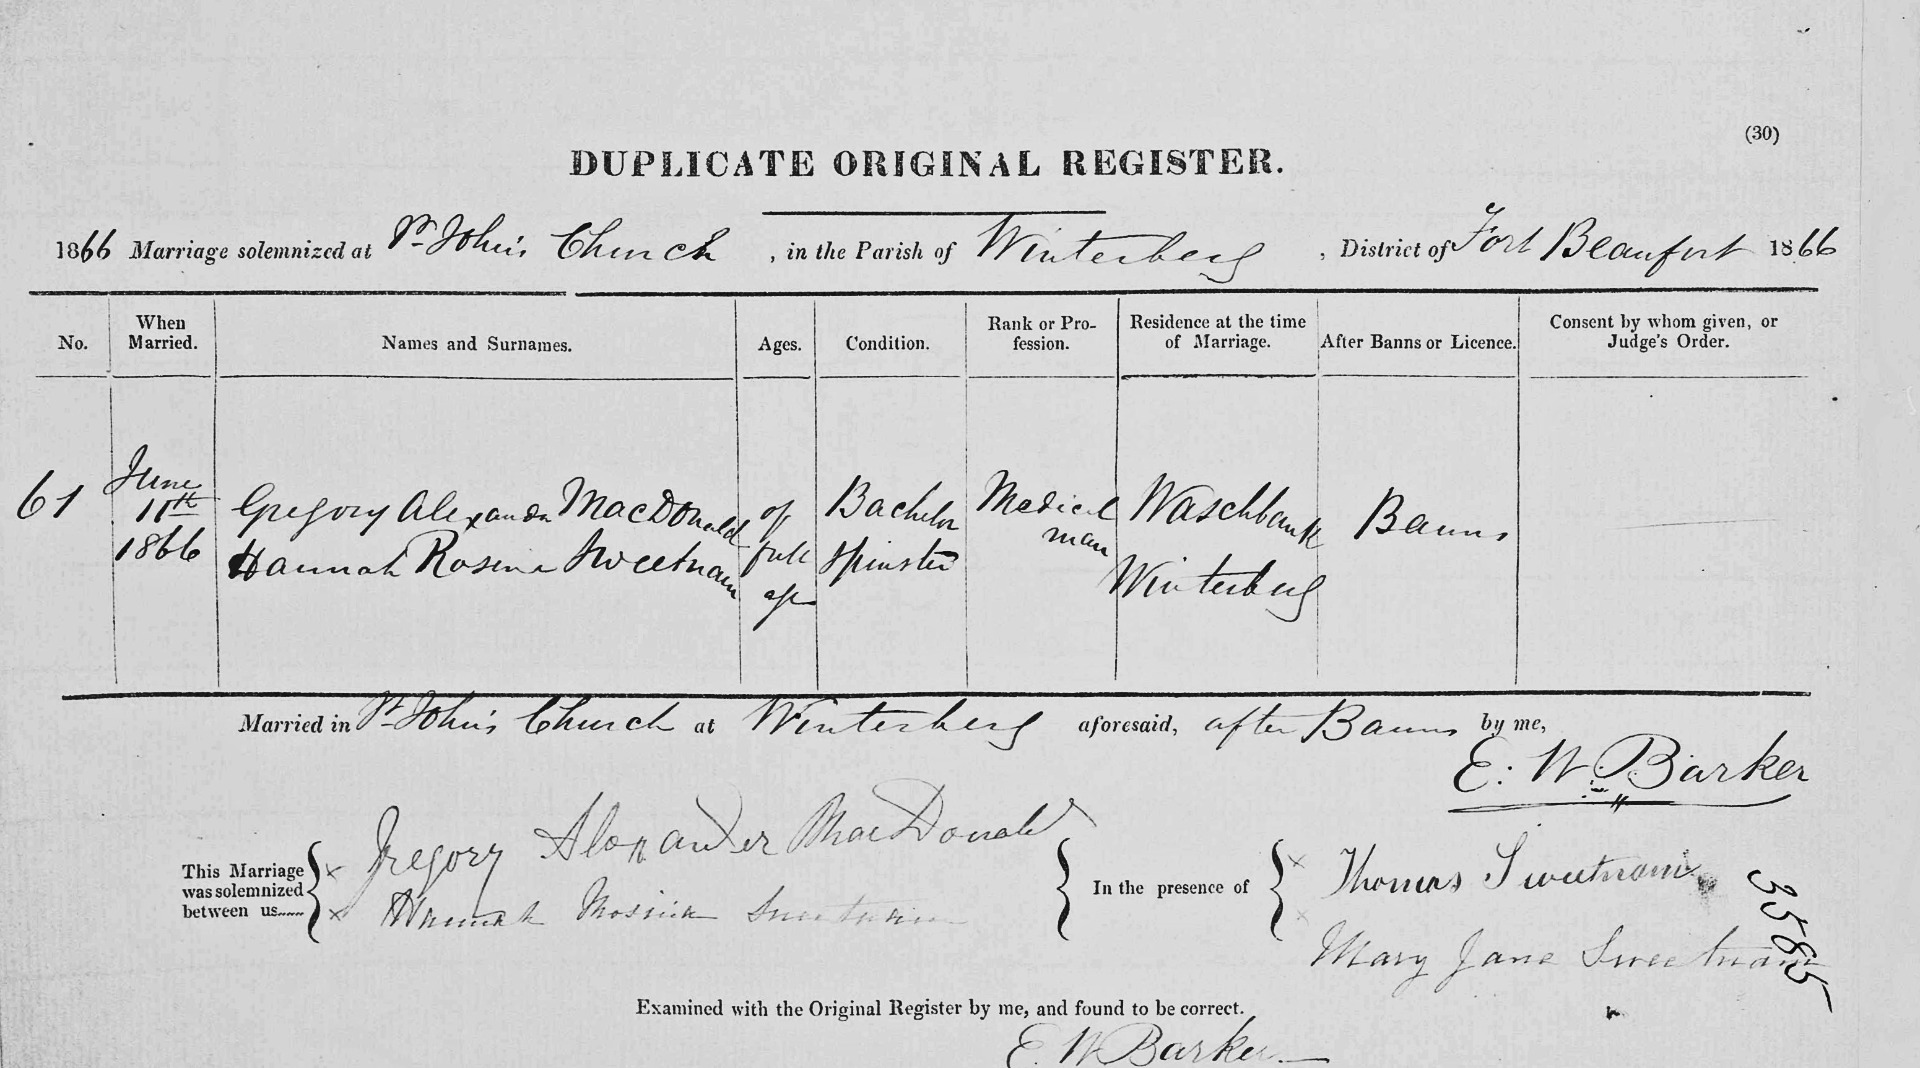 (30)
DUPLICATE ORIGINAL REGISTER.
1866 Marriage solemnized at St. John's Church, in the Parish of Winterberg, District of Fort Beaufort 1866
No. When Married. Names and Surnames. Ages. Condition. Rank or Profession. Residence at the time of Marriage. After Banns or Licence. Consent by whom given, or Judge's Order.
61 June 11th 1866
Gregory Alexander MacDonald of full age Bachelor Medical man Waschbank Banns
Hannah Rosina Sweetnam Spinster Winterberg
Married in St. John's Church at Winterberg aforesaid, after Banns by me,
E. W. Barker
This Marriage was solemnized between us
x Gregory Alexander MacDonald
x Hannah Rosina Sweetnam
In the presence of
x Thomas Sweetnam
x Mary Jane Sweetnam
3585
Examined with the Original Register by me, and found to be correct.
E. W Barker